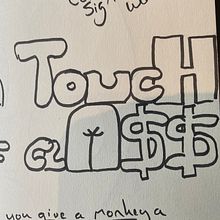 sign
TouCH
a A$$
you give a monkey a